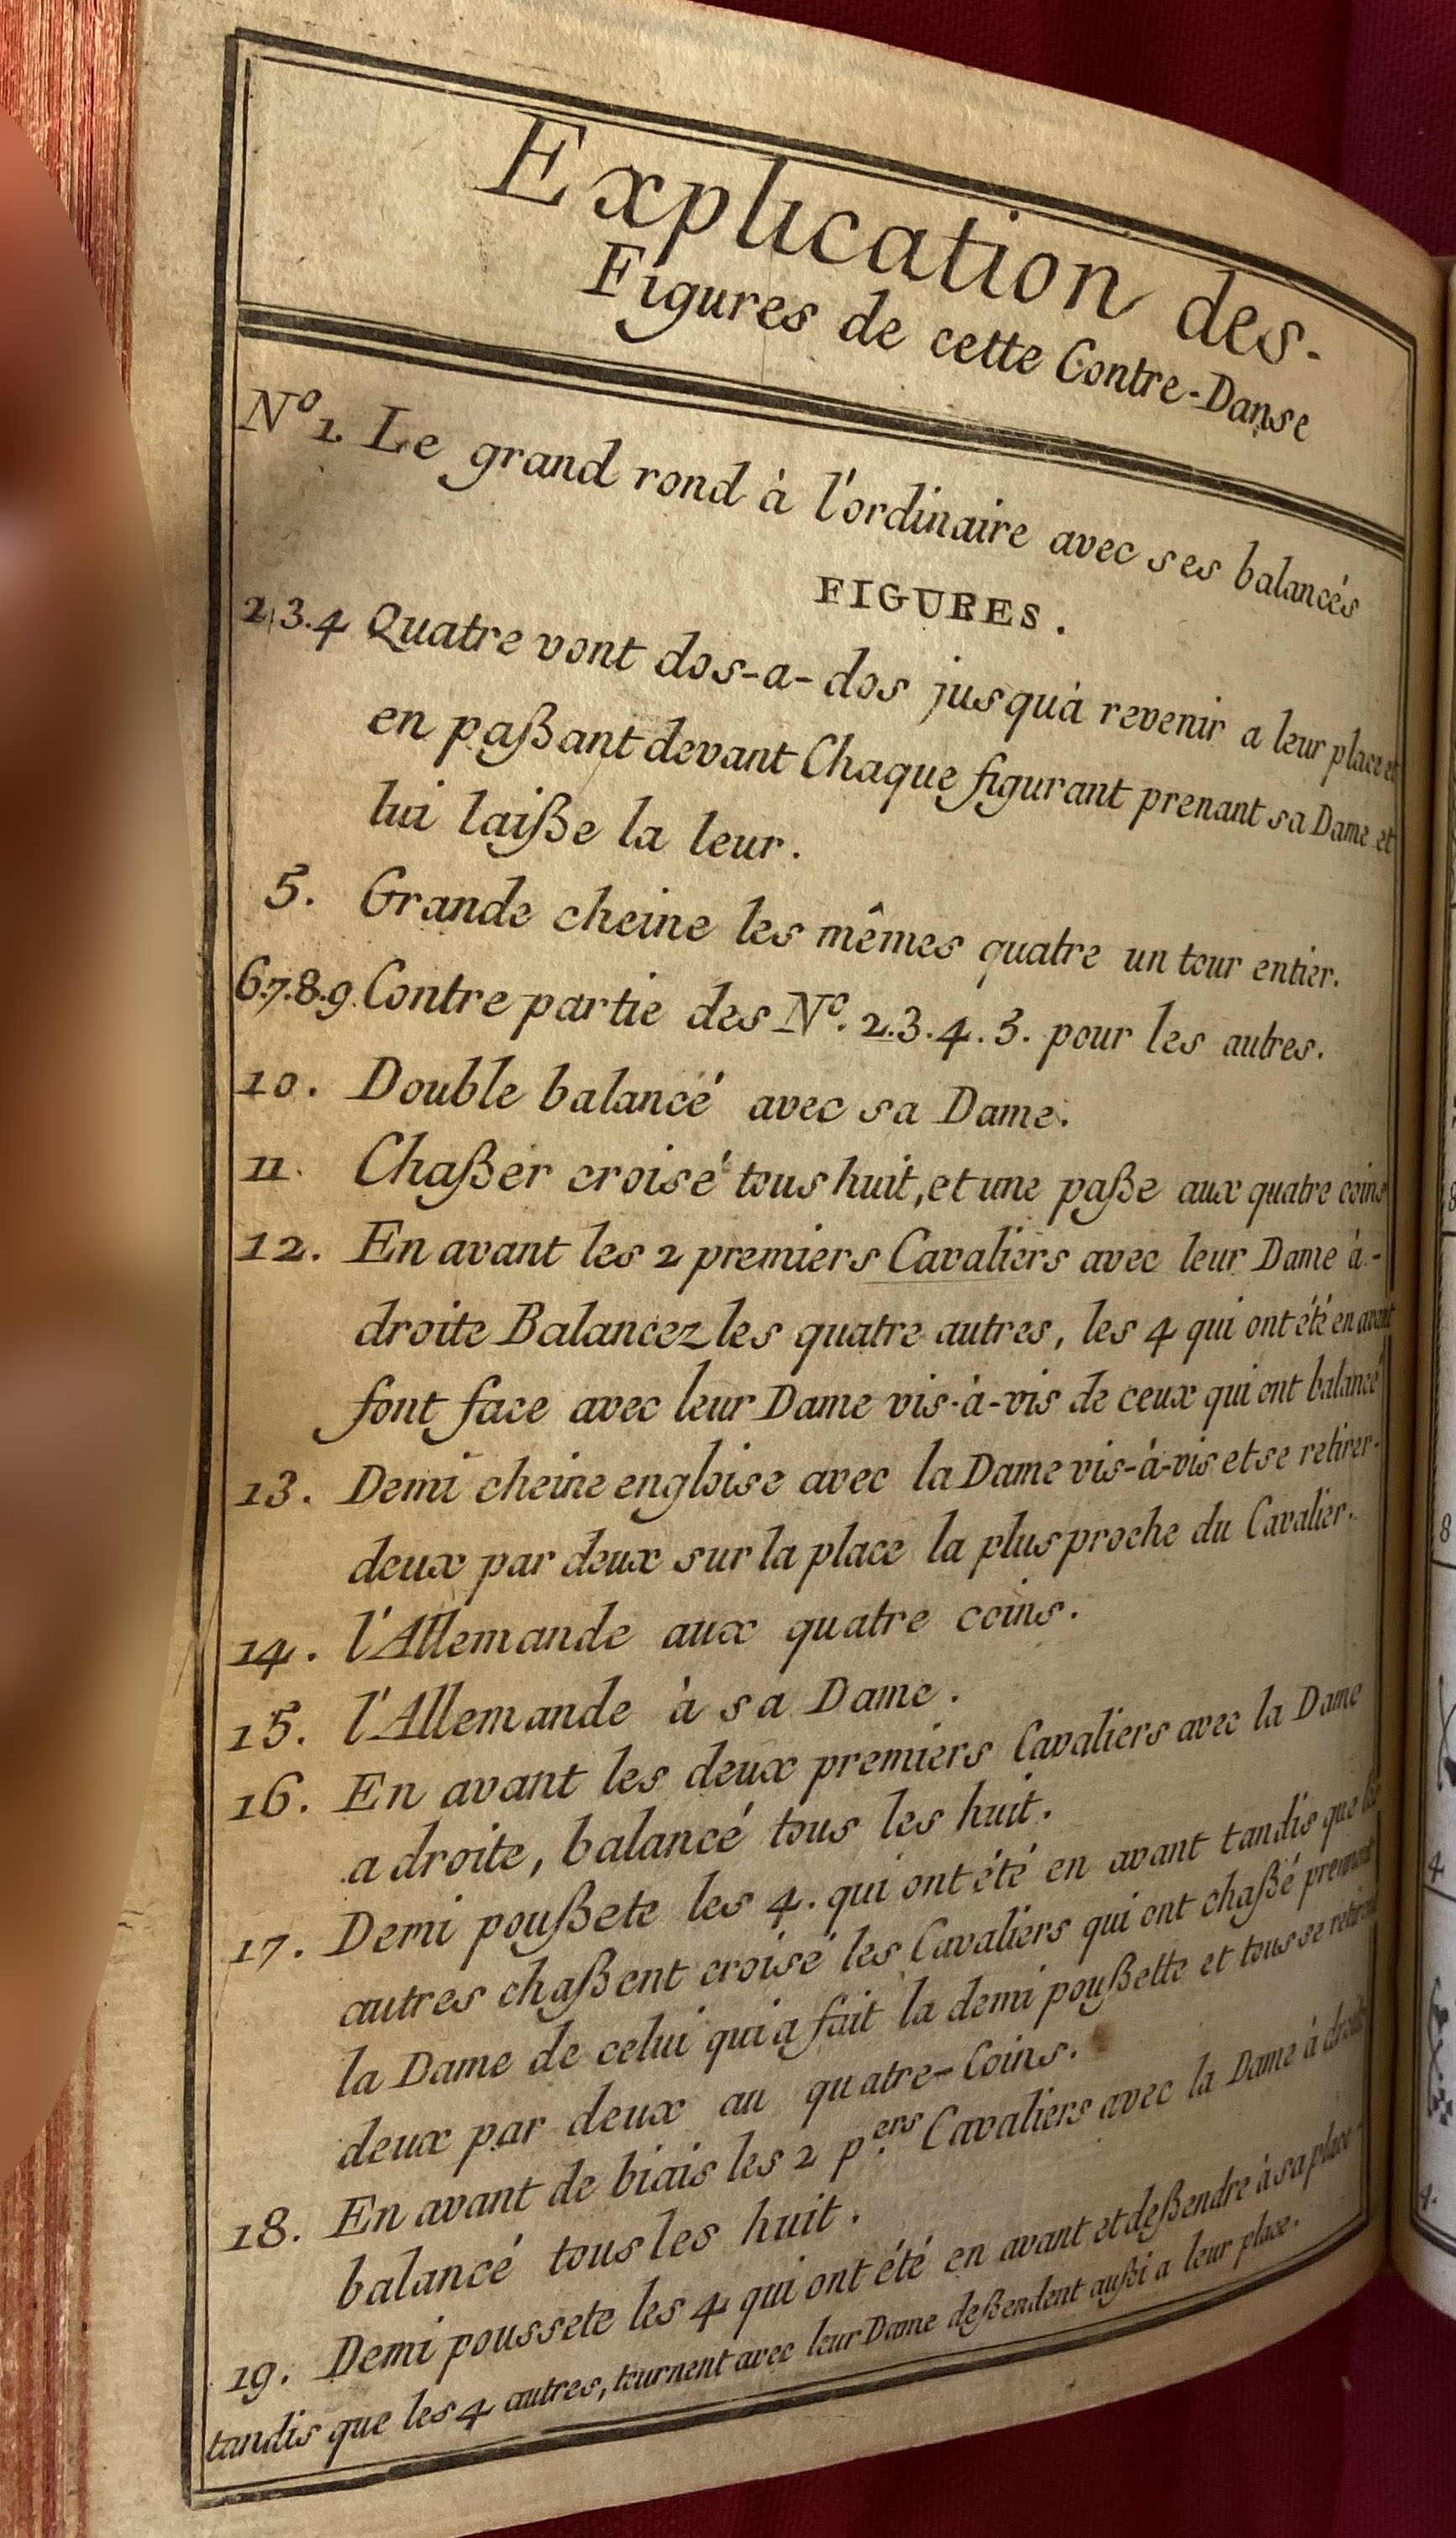 Explication des.
Figures de cette Contre-Danse
N.º 1. Le grand rond à l'ordinaire avec ses balancés
FIGURES.
2.3.4 Quatre vont dos-a-dos jusqu'à revenir a leur place et
en paßant devant Chaque figurant prenant sa Dame et
lui laiße la leur.
5. Grande cheine les mêmes quatre un tour entier.
6.7.8.9. Contre partie des Nº. 2.3.4.5. pour les autres.
10. Double balancé avec sa Dame.
11. Chaßer croisé tous huit, et une paße aux quatre coins
12. En avant les 2 premiers Cavaliers avec leur Dame à-
droite Balancez les quatre autres, les 4 qui ont été en avant
font face avec leur Dame vis-à-vis de ceux qui ont balancé
13. Demi cheine engloise avec la Dame vis-à-vis et se retirer-
deux par deux sur la place la plus proche du Cavalier.
14. l'Allemande aux quatre coins.
15. l'Allemande à sa Dame.
16. En avant les deux premiers Cavaliers avec la Dame
a droite, balancé tous les huit.
17. Demi poußete les 4. qui ont été en avant tandis que les
autres chaßent croisé les Cavaliers qui ont chaßé prennent
la Dame de celui qui a fait la demi poußette et tous se retirent
deux par deux au quatre-Coins.
18. En avant de biais les 2 p.ers Cavaliers avec la Dame à droite
balancé tous les huit.
19. Demi poussete les 4 qui ont été en avant et deßendre à sa place-
tandis que les 4 autres, tournent avec leur Dame deßendent außi a leur place.
8
8
4
4.